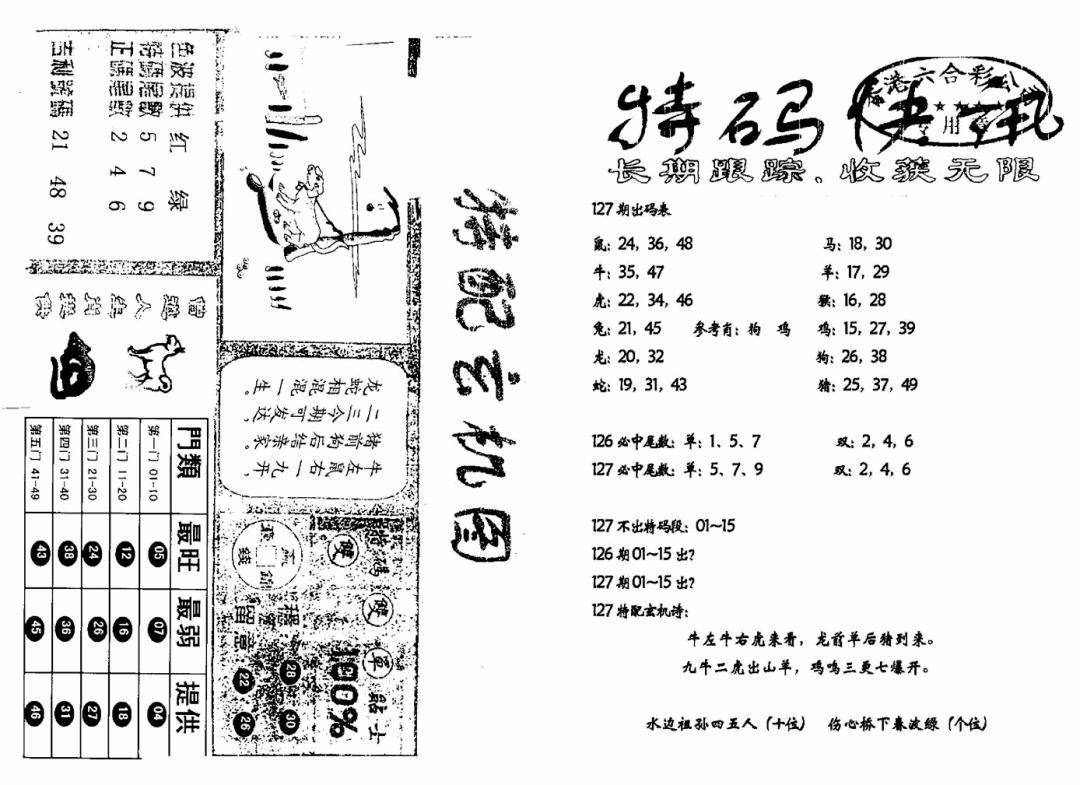 特码快讯
香港六合彩公司
★★★★
专用章
长期跟踪、收获无限
127期出码表
鼠: 24, 36, 48 马: 18, 30
牛: 35, 47 羊: 17, 29
虎: 22, 34, 46 猴: 16, 28
兔: 21, 45 参考肖: 狗 鸡 鸡: 15, 27, 39
龙: 20, 32 狗: 26, 38
蛇: 19, 31, 43 猪: 25, 37, 49
126必中尾数: 单: 1、5、7 双: 2, 4, 6
127必中尾数: 单: 5、7、9 双: 2, 4, 6
127不出特码段: 01~15
126期01~15出?
127期01~15出?
127特配玄机诗:
牛左牛右虎来看, 龙前羊后猪到来。
九牛二虎出山羊, 鸡鸣三更七爆开。
水边祖孙四五人 (十位) 伤心桥下春波绿 (个位)
特配玄机图
色波提供 红 绿
特碼尾數 5 7 9
正碼尾數 2 4 6
吉利號碼 21 48 39
牛左鼠右一九开,
猪前狗后结亲家。
二三今期可发达,
龙蛇相混混一生。
門類 最旺 最弱 提供
第一门 01-10 05 07 04
第二门 11-20 12 16 18
第三门 21-30 24 26 27
第四门 31-40 38 36 31
第五门 41-49 43 45 46
特碼
雙
雙
單
貼士
100%
留意
28
30
22
26